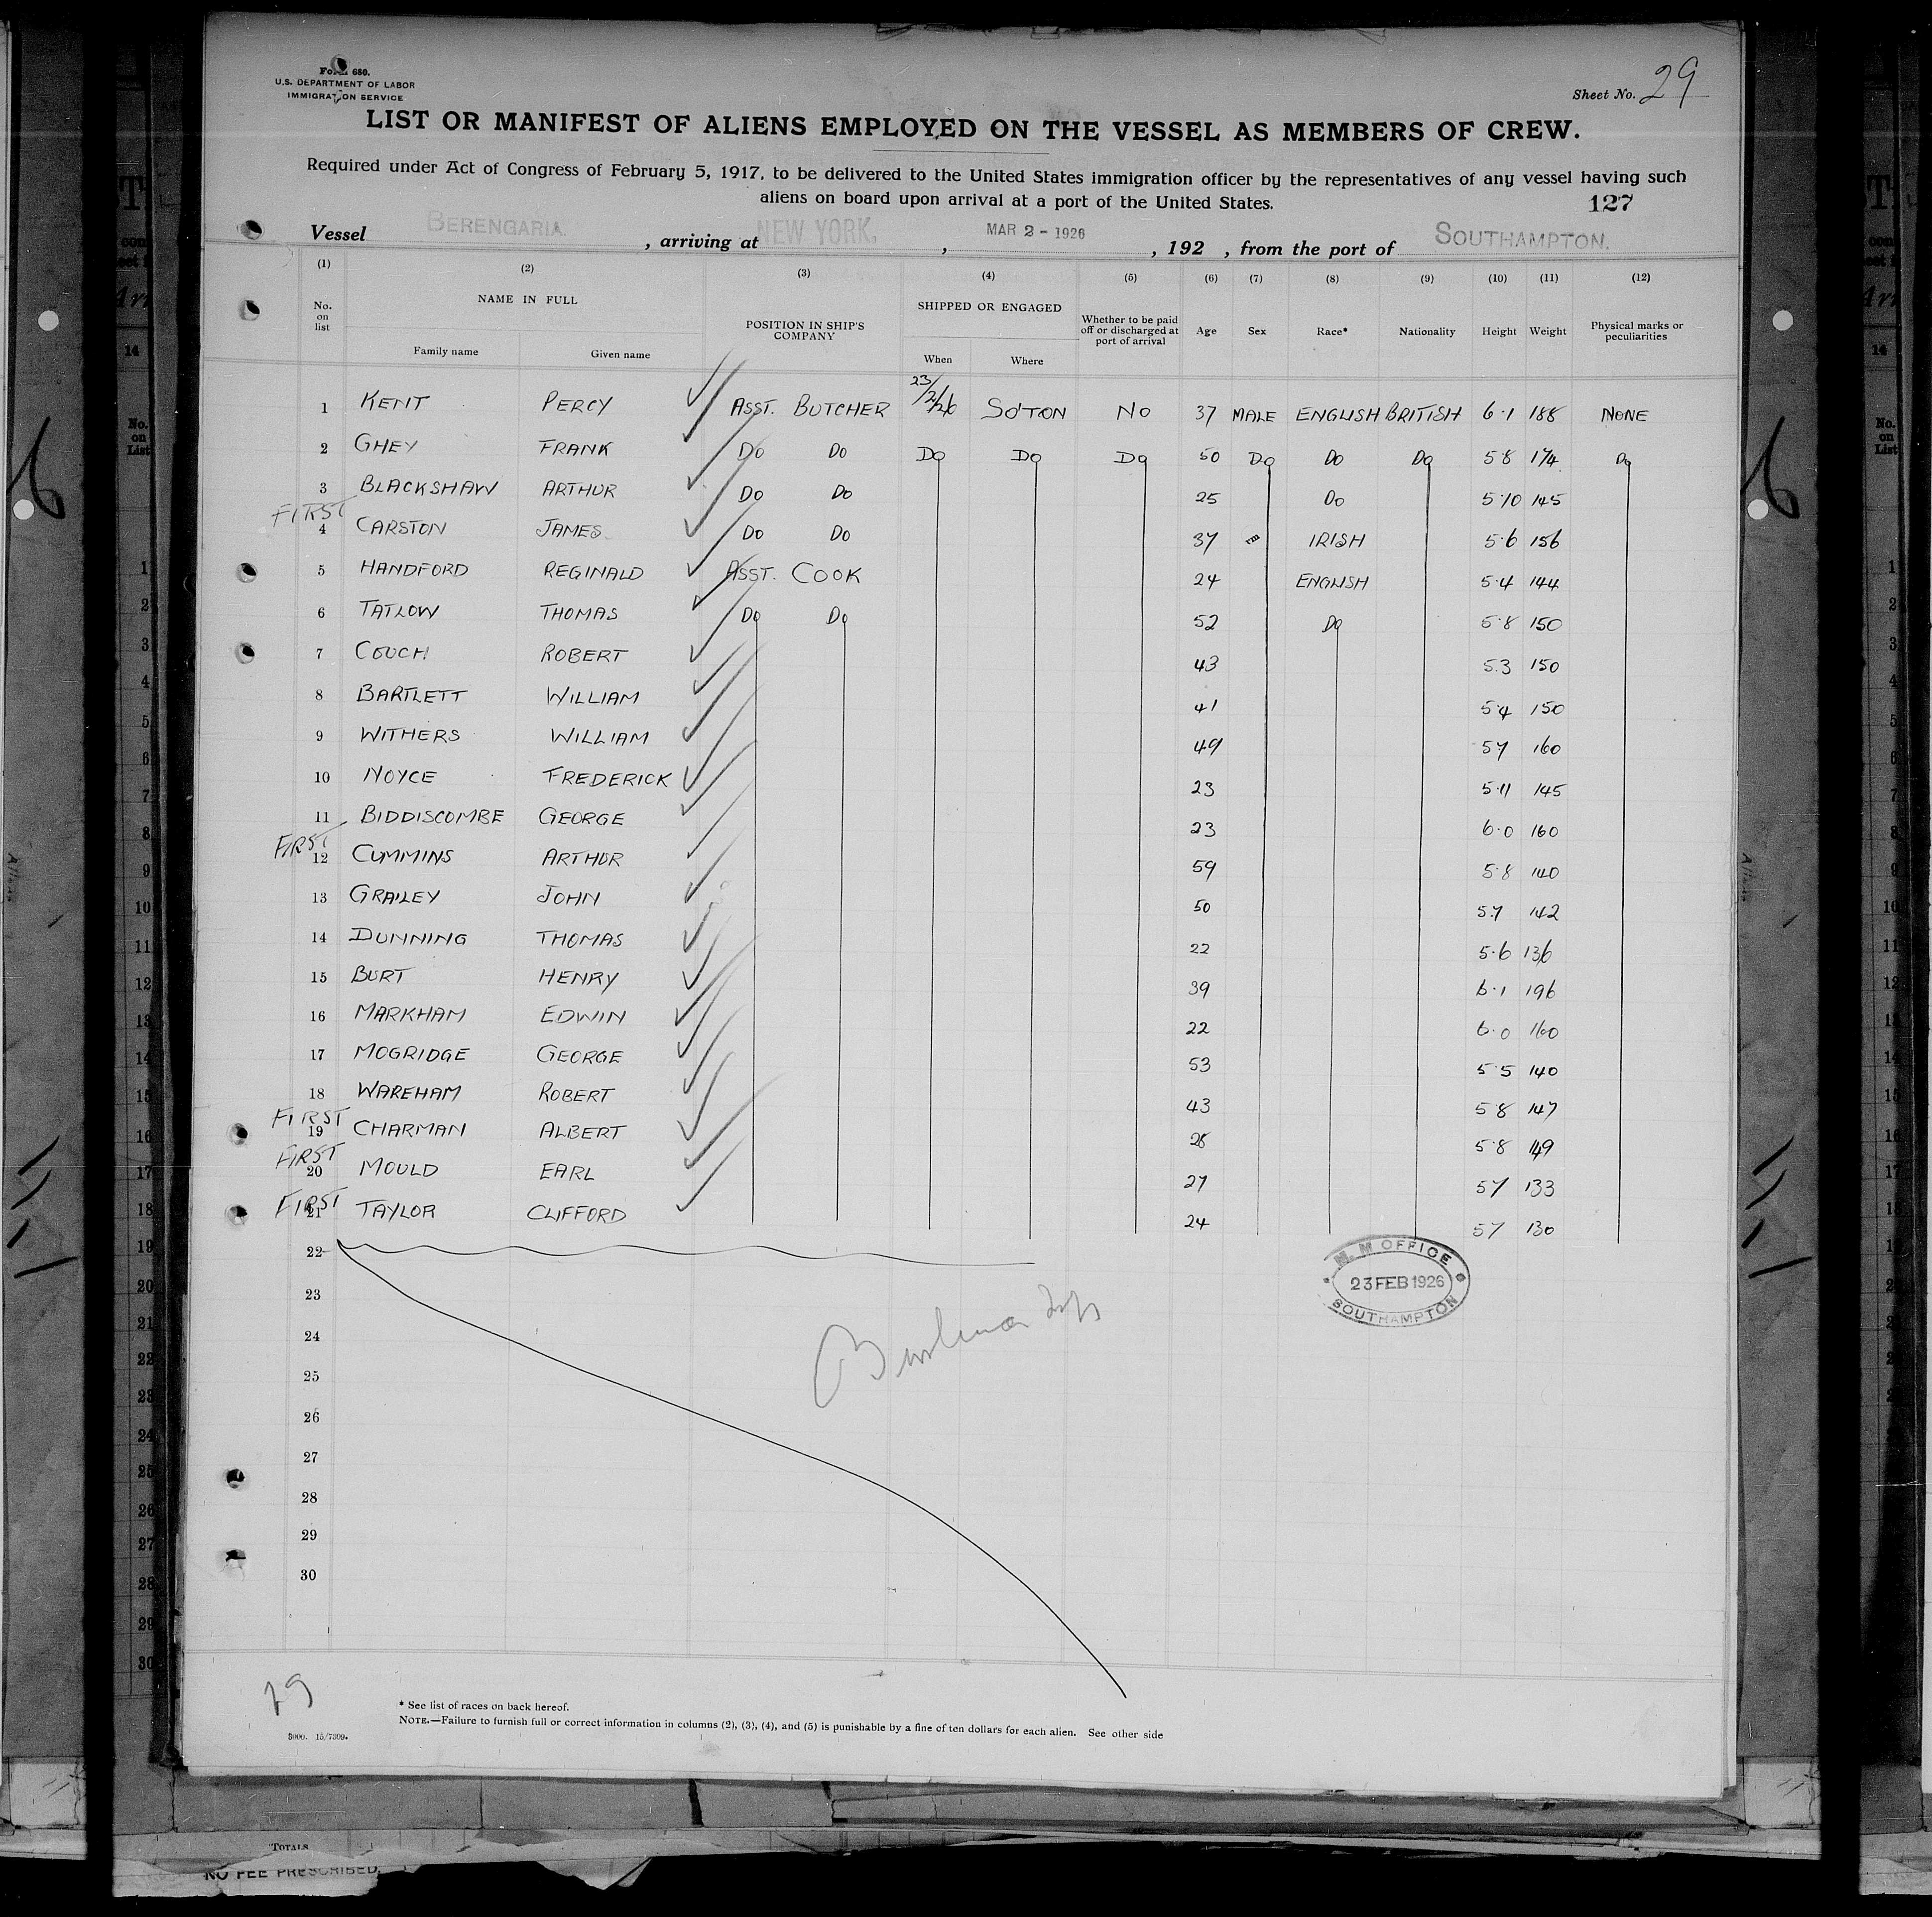 Form 680.
U.S. DEPARTMENT OF LABOR
IMMIGRATION SERVICE
Sheet No. 29
LIST OR MANIFEST OF ALIENS EMPLOYED ON THE VESSEL AS MEMBERS OF CREW.
Required under Act of Congress of February 5, 1917, to be delivered to the United States immigration officer by the representatives of any vessel having such
aliens on board upon arrival at a port of the United States.
127
Vessel BERENGARIA. , arriving at NEW YORK. , MAR 2 - 1926 , 192 , from the port of SOUTHAMPTON.
(1) (2) (3) (4) (5) (6) (7) (8) (9) (10) (11) (12)
No. on list NAME IN FULL Family name Given name POSITION IN SHIP'S COMPANY SHIPPED OR ENGAGED When Where Whether to be paid off or discharged at port of arrival Age Sex Race* Nationality Height Weight Physical marks or peculiarities
1 KENT PERCY ASST. BUTCHER 23/2/26 SO'TON NO 37 MALE ENGLISH BRITISH 6·1 188 NONE
2 GHEY FRANK DO DO DO DO DO 50 DO DO DO 5 8 174 DO
3 BLACKSHAW ARTHUR DO DO 25 DO 5·10 145
FIRST 4 CARSTON JAMES DO DO 37 IRISH 5·6 156
5 HANDFORD REGINALD ASST. COOK 24 ENGLISH 5·4 144
6 TATLOW THOMAS DO DO 52 DO 5·8 150
7 COUCH ROBERT 43 5.3 150
8 BARTLETT WILLIAM 41 5·4 150
9 WITHERS WILLIAM 49 57 160
10 NOYCE FREDERICK 23 5·11 145
11 BIDDISCOMBE GEORGE 23 6·0 160
FIRST 12 CUMMINS ARTHUR 59 5·8 140
13 GRAILEY JOHN 50 5.7 142
14 DUNNING THOMAS 22 5·6 136
15 BURT HENRY 39 6·1 196
16 MARKHAM EDWIN 22 6·0 160
17 MOGRIDGE GEORGE 53 5·5 140
18 WAREHAM ROBERT 43 5 8 147
FIRST 19 CHARMAN ALBERT 28 5·8 149
FIRST 20 MOULD EARL 27 57 133
FIRST 21 TAYLOR CLIFFORD 24 57 130
22
M. M OFFICE
23 FEB 1926
SOUTHAMPTON
23
24
25
26
27
28
29
30
29
* See list of races on back hereof.
NOTE.—Failure to furnish full or correct information in columns (2), (3), (4), and (5) is punishable by a fine of ten dollars for each alien. See other side
3000. 15/7309.
TOTALS
NO FEE PRESCRIBED.